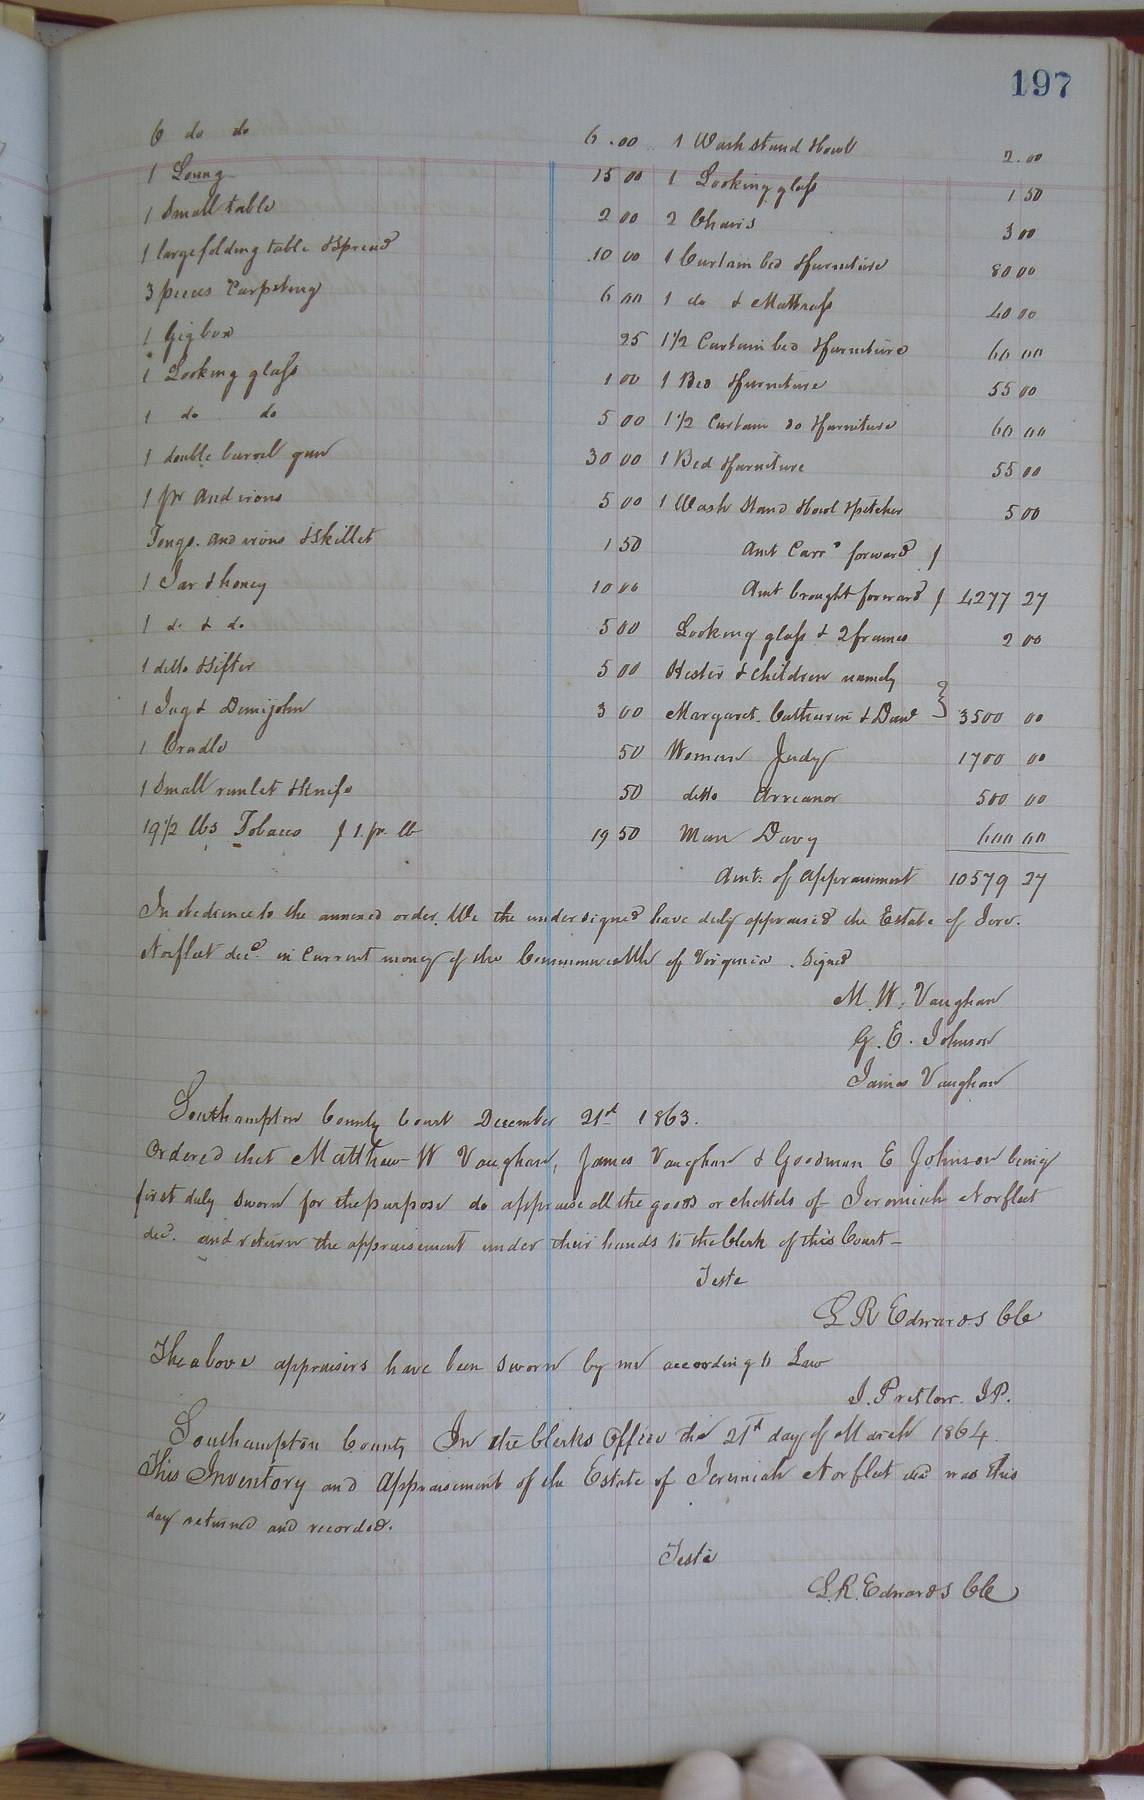 197
6 do do 6.00
1 Loung 15 00
1 Small table 2 00
1 large folding table & Spread 10 00
3 pieces Carpeting 6 00
1 Gig box 25
1 Looking glass 1 00
1 do do 5 00
1 double barrel gun 30 00
1 pr And irons 5 00
Tongs. And irons & Skillet 1 50
1 Jar & honey 10 00
1 do & do 5 00
1 ditto & Sifter 5 00
1 Jug & Demijohn 3 00
1 Cradle 50
1 Small runlet & Knife 50
19 1/2 lbs Tobacco 1. pr. lb 19 50
1 Wash Stand & bowl 2.00
1 Looking glass 1 50
2 Chairs 3 00
1 Curtain bed & furniture 80 00
1 do & Mattrass 40 00
1 1/2 Curtain bed & furniture 60 00
1 Bed & furniture 55 00
1 1/2 Curtain do & furniture 60 00
1 Bed & furniture 55 00
1 Wash Stand & bowl & pitcher 5 00
Amt Carrd forward
Amt brought forward 4277 27
Looking glass & 2 frames 2 00
Hester & children namely
Margaret. Catharine & Dan } 3500 00
Woman Judy 1700 00
ditto Arreanor 500 00
Man Davy 600 00
Amt: of Appraisment 10579 27
In obedience to the annexed order We the undersigned have duly appraised the Estate of Jere.
Norfleet decd. in Current money of the Commonwealth of Virginia. Signed
M. W. Vaughan
G. E. Johnson
James Vaughan
Southampton County Court December 21st 1863.
Ordered that Matthew W Vaughan, James Vaughan & Goodman E Johnson being
first duly sworn for the purpose do appraise all the goods or chattels of Jeremiah Norfleet
dec. and return the appraisement under their hands to the Clerk of this Court-
Teste
L R Edwards Clk
The above appraisers have been sworn by me according to Law
J. Pretlow J.P.
Southampton County In the Clerks Office the 21st day of March 1864.
This Inventory and Appraisement of the Estate of Jeremiah Norfleet decd was this
day returned and recorded.
Teste
L.R. Edwards Clk